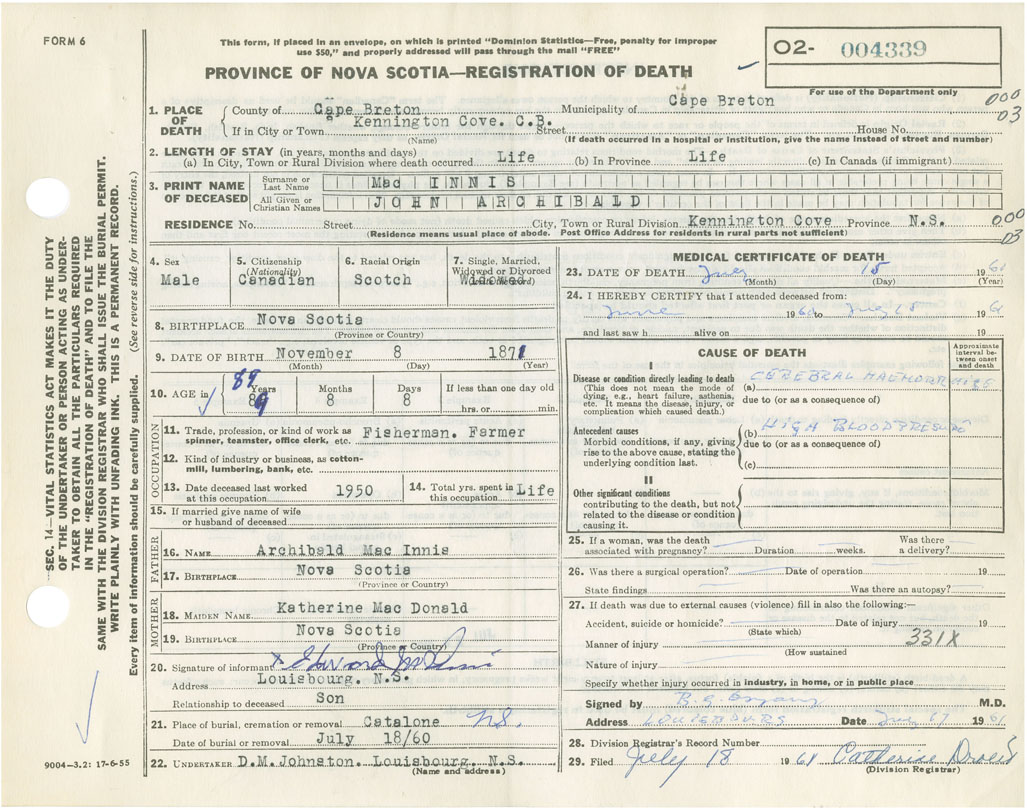 FORM 6
This form, if placed in an envelope, on which is printed "Dominion Statistics—Free, penalty for improper
use $50," and properly addressed will pass through the mail "FREE"
PROVINCE OF NOVA SCOTIA—REGISTRATION OF DEATH
02- 004339
For use of the Department only
000
03
1. PLACE OF DEATH County of Cape Breton Municipality of Cape Breton
If in City or Town Kennington Cove. C.B. Street House No.
(Name) (If death occurred in a hospital or institution, give the name instead of street and number)
2. LENGTH OF STAY (in years, months and days)
(a) In City, Town or Rural Division where death occurred Life (b) In Province Life (c) In Canada (if immigrant)
3. PRINT NAME OF DECEASED
Surname or Last Name Mac INNIS
All Given or Christian Names JOHN ARCHIBALD
RESIDENCE No. Street City, Town or Rural Division Kennington Cove Province N.S.
(Residence means usual place of abode. Post Office Address for residents in rural parts not sufficient)
000
03
4. Sex Male
5. Citizenship (Nationality) Canadian
6. Racial Origin Scotch
7. Single, Married, Widowed or Divorced Widowed
8. BIRTHPLACE Nova Scotia
(Province or Country)
9. DATE OF BIRTH November 8 1871
(Month) (Day) (Year)
10. AGE in 89 Years 89 Months 8 Days 8 If less than one day old
hrs. or min.
OCCUPATION
11. Trade, profession, or kind of work as
spinner, teamster, office clerk, etc. Fisherman. Farmer
12. Kind of industry or business, as cotton-
mill, lumbering, bank, etc.
13. Date deceased last worked
at this occupation 1950
14. Total yrs. spent in
this occupation Life
15. If married give name of wife
or husband of deceased
FATHER
16. NAME Archibald Mac Innis
17. BIRTHPLACE Nova Scotia
(Province or Country)
MOTHER
18. MAIDEN NAME Katherine Mac Donald
19. BIRTHPLACE Nova Scotia
(Province or Country)
20. Signature of informant x
Address Louisbourg. N.S.
Relationship to deceased Son
21. Place of burial, cremation or removal Catalone N.S.
Date of burial or removal July 18/60
22. UNDERTAKER D.M. Johnston. Louisbourg. N.S.
(Name and address)
MEDICAL CERTIFICATE OF DEATH
23. DATE OF DEATH July 15 1961
(Month) (Day) (Year)
24. I HEREBY CERTIFY that I attended deceased from:
June 1960 to July 15 1961
and last saw h alive on 19
CAUSE OF DEATH
Approximate
interval be-
tween onset
and death
I
Disease or condition directly leading to death
(This does not mean the mode of
dying, e.g., heart failure, asthenia,
etc. It means the disease, injury, or
complication which caused death.)
(a) CEREBRAL HAEMORRHAGE
due to (or as a consequence of)
Antecedent causes
Morbid conditions, if any, giving
rise to the above cause, stating the
underlying condition last.
(b) HIGH BLOODPRESSURE
due to (or as a consequence of)
(c)
II
Other significant conditions
contributing to the death, but not
related to the disease or condition
causing it.
25. If a woman, was the death
associated with pregnancy? Duration weeks. Was there
a delivery?
26. Was there a surgical operation? Date of operation 19
State findings Was there an autopsy?
27. If death was due to external causes (violence) fill in also the following:—
Accident, suicide or homicide? Date of injury 19
(State which)
Manner of injury 331X
(How sustained
Nature of injury
Specify whether injury occurred in industry, in home, or in public place
Signed by M.D.
Address LOUISBOURG Date July 17 1961
28. Division Registrar's Record Number
29. Filed July 18 1961 Catherine
(Division Registrar)
SEC. 14—VITAL STATISTICS ACT MAKES IT THE DUTY
OF THE UNDERTAKER OR PERSON ACTING AS UNDER-
TAKER TO OBTAIN ALL THE PARTICULARS REQUIRED
IN THE "REGISTRATION OF DEATH" AND TO FILE THE
SAME WITH THE DIVISION REGISTRAR WHO SHALL ISSUE THE BURIAL PERMIT.
WRITE PLAINLY WITH UNFADING INK. THIS IS A PERMANENT RECORD.
Every item of information should be carefully supplied. (See reverse side for instructions.)
9004-3.2: 17-6-55